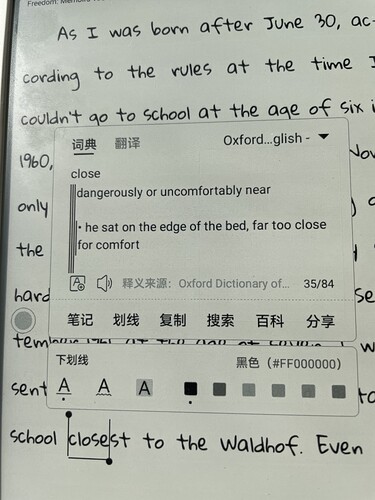 Freedom: Memoirs
As I was born after June 30, ac-
cording to the rules at the time I
couldn't go to school at the age of six i
1960,
Nov
only
the
hard
se
词典 翻译 Oxford...glish -
close
dangerously or uncomfortably near
• he sat on the edge of the bed, far too close
for comfort
释义来源: Oxford Dictionary of... 35/84
笔记 划线 复制 搜索 百科 分享
下划线 黑色 (#FF000000)
A A A
sent
to
school closest to the Waldhof. Even